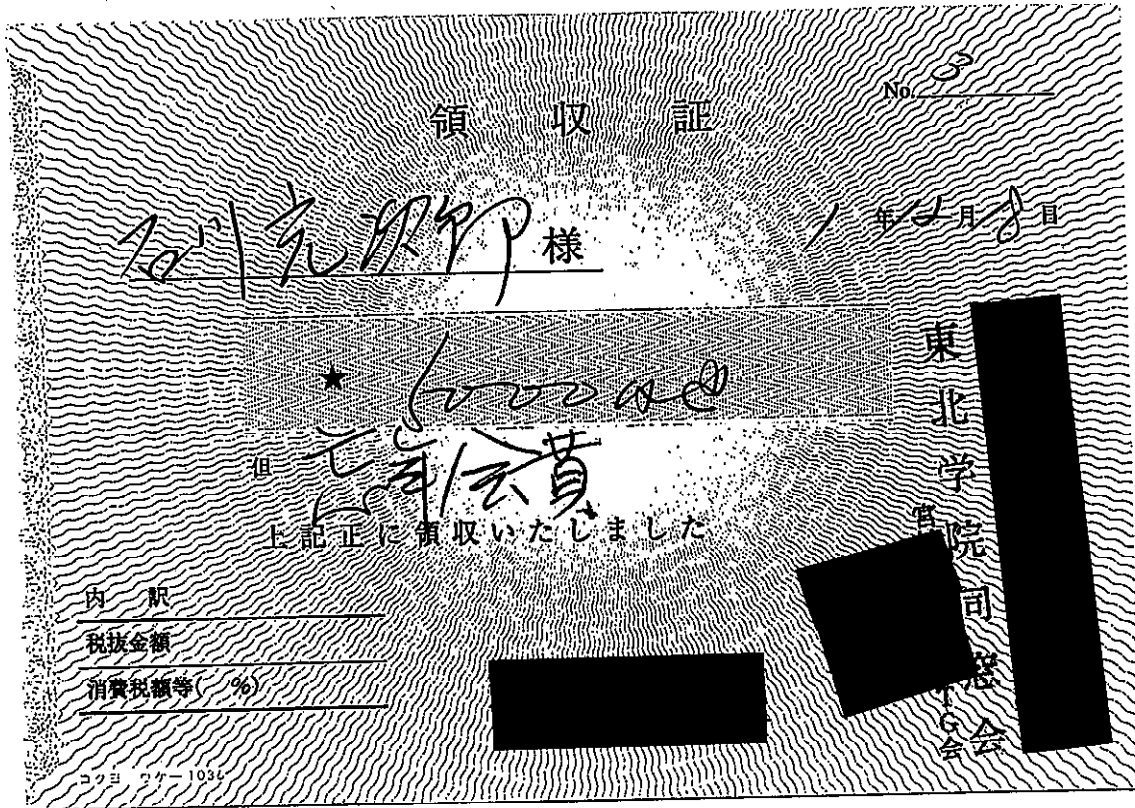 No. 3
領収証
石川光次郎 様
1年12月8日
★ 6000
但 会費
上記正に領収いたしました
内訳
税抜金額
消費税額等( %)
コクヨ ウケー1036
東北学院同窓会
宮
TG会